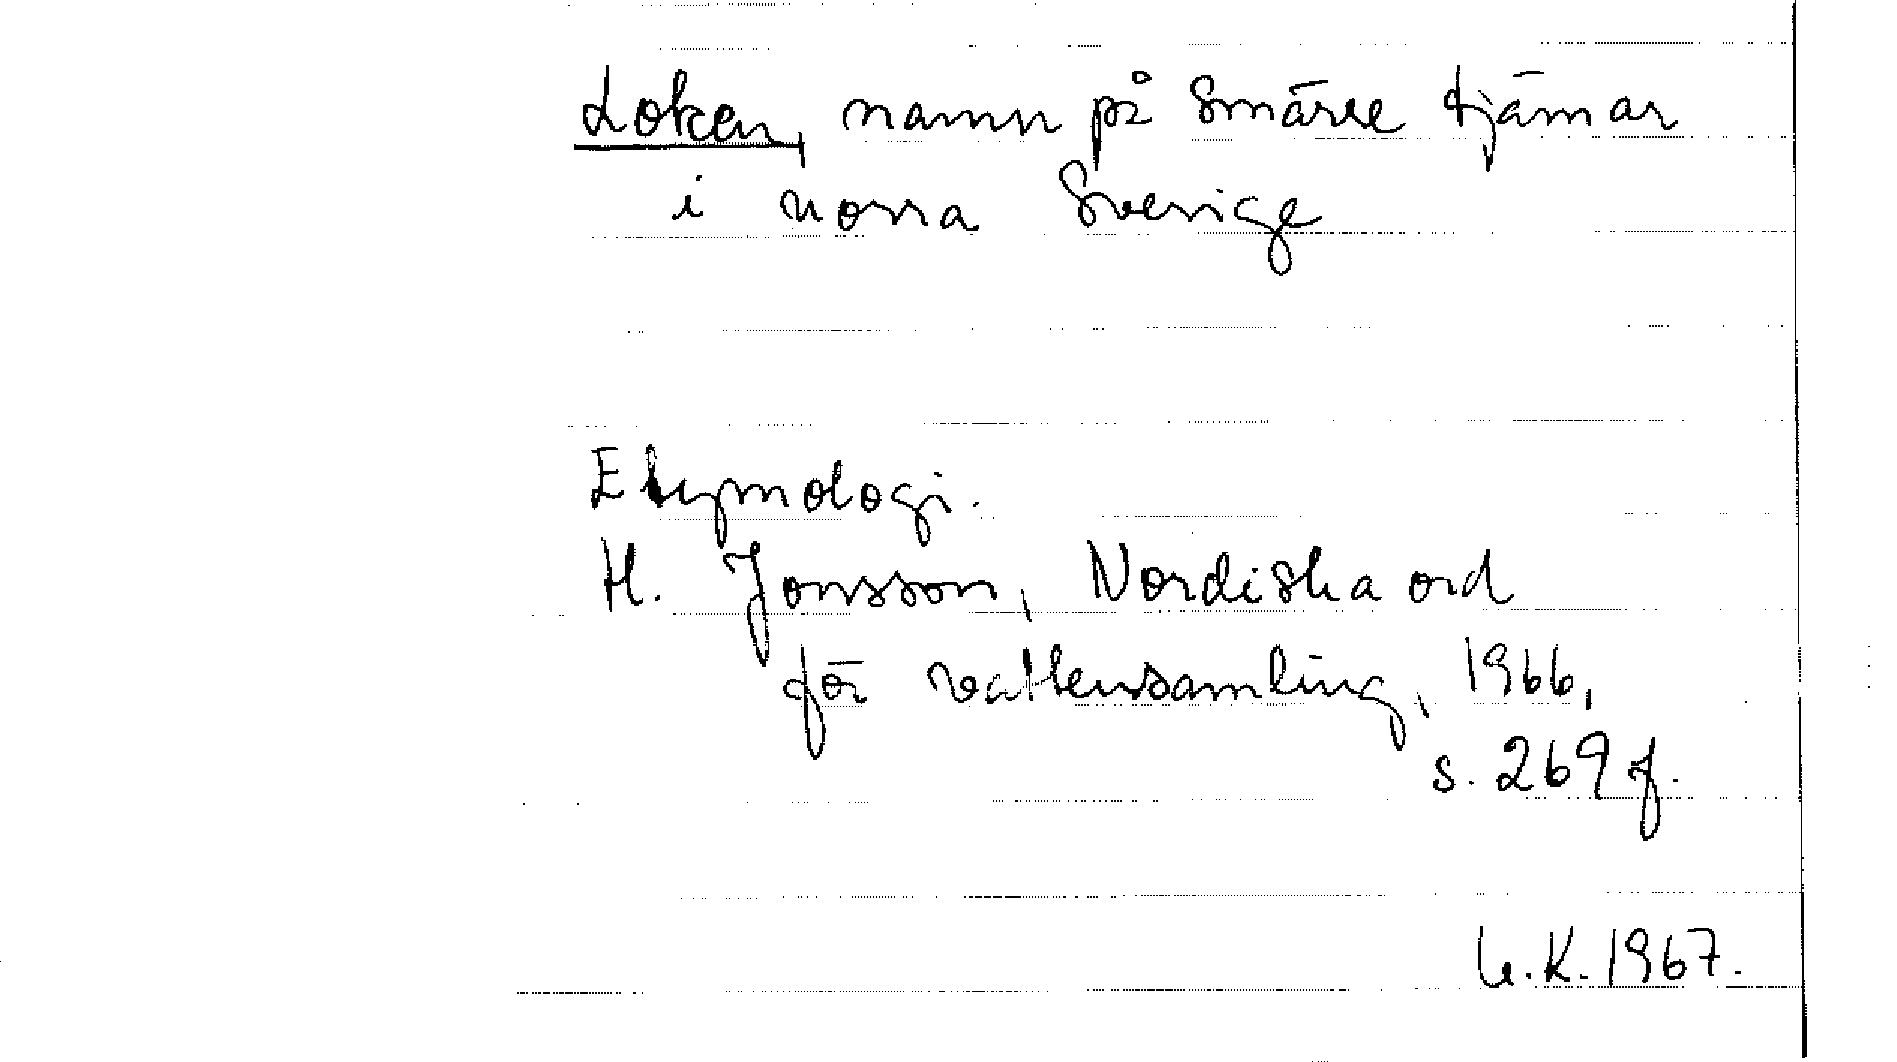 Loken, namn på smärre tjärnar
i norra Sverige
Etymologi.
H. Jonsson, Nordiska ord
för vattensamling, 1966,
s. 269 f.
K. 1967.